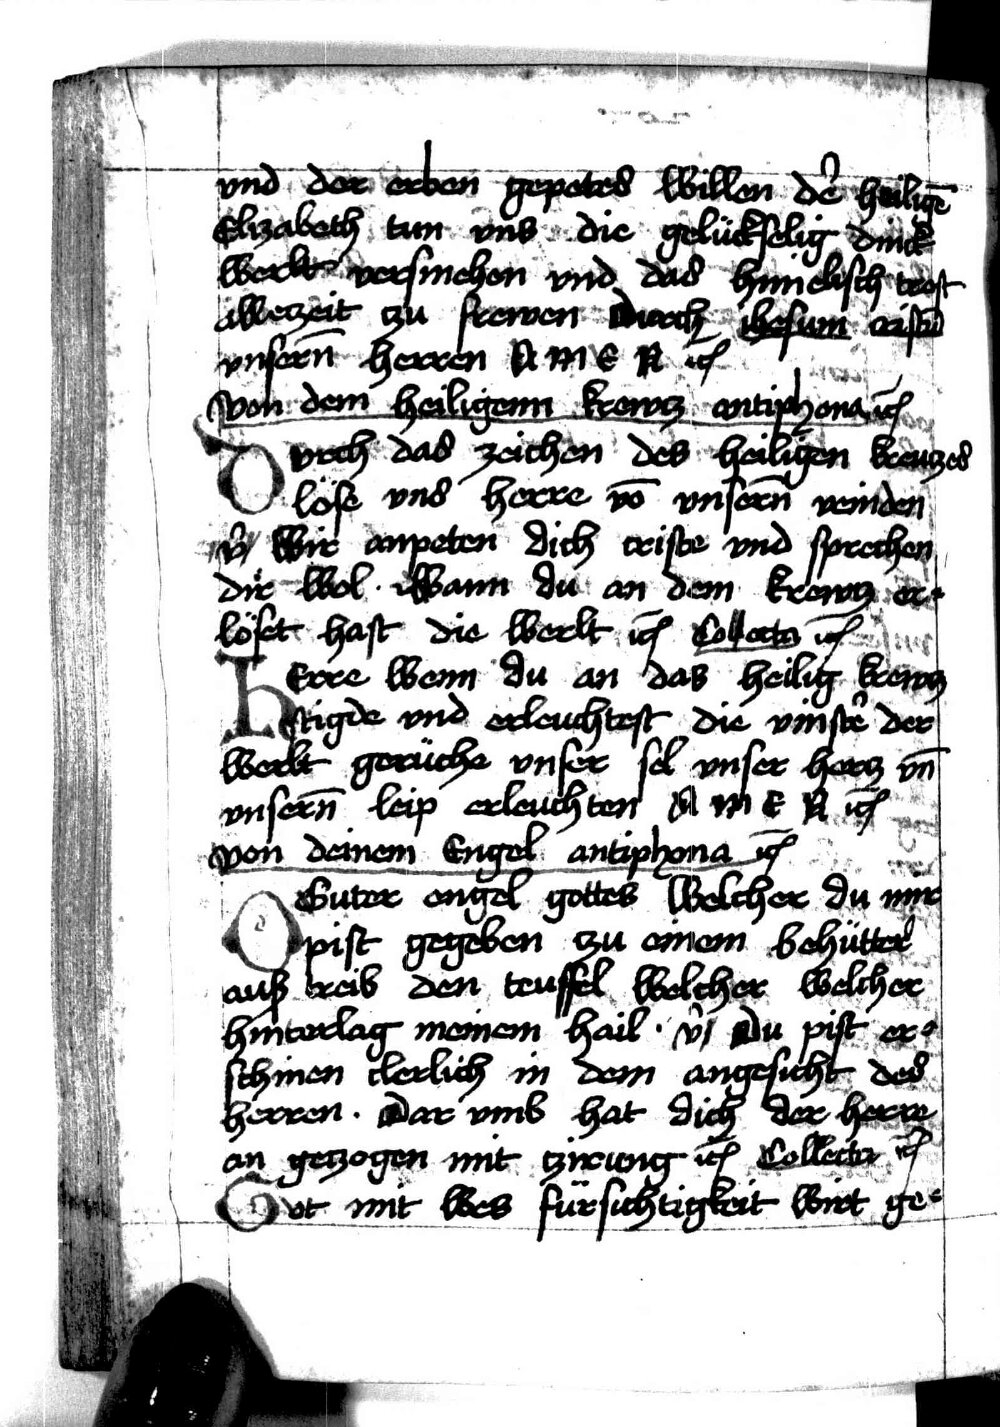 vnd der erben gepetes willen dē heiligē
Elizabeth tun vns die gelückselig dinck
werlt versmehen vnd das himelisch trost
allerzeit zu frewen Durch ihesum cristū
vnsern̄ herren A M E N
von dem heiligenn krewtz antiphona
Durch das zeichen des heiligen kreutzes
löse vns herre vō vnsern̄ veinden
v̄ Wir anpeten dich criste vnd sprechen
dir wol. Wann du an dem krewtz er-
löset hast die werlt Collecta
HErre wenn du an das heilig krewtz
stigde vnd erleuchtest die vinstē der
werlt gerüche vnser sel vnser hertz vn̄
vnsern̄ leip erleuchten A M E N
von deinem Engel antiphona
O Guter engel gottes welcher du mir
pist gegeben zu einem behütter
auß treib den teuffel welcher welcher
hinterlag meinem hail. v̄ Du pist er-
schinen clerlich in dem angesicht des
herren. Dar vmb hat dich der herre
an getzogen mit tzirung Collecta
Got mit wes fürsichtigkeit wirt ge-